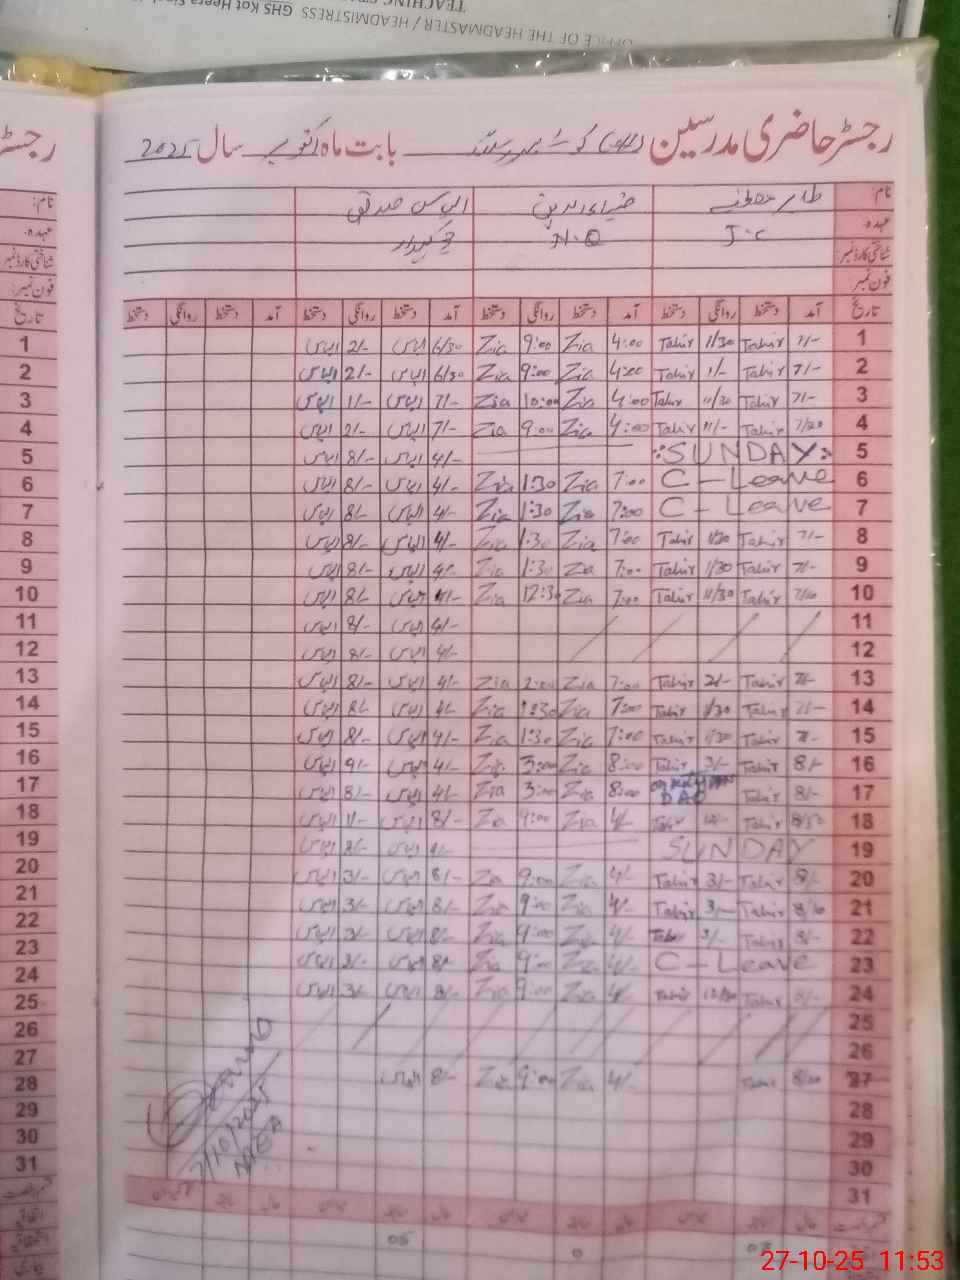 TEACHING
OFFICE OF THE HEADMASTER / HEADMISTRESS GHS Kot Heera Singh
رجسٹر حاضری مدرسین بابت ماہ اکتوبر سال 2025
نام: طاہر مصطفیٰ ضیاء الدین الیاس صدیقی
عہدہ: J.C N.Q چوکیدار
شناختی کارڈ نمبر:
فون نمبر:
تاریخ آمد دستخط روانگی دستخط آمد دستخط روانگی دستخط آمد دستخط روانگی دستخط آمد دستخط روانگی دستخط
1 7/- Tahir 1/30 Tahir 4:00 Zia 9:00 Zia 6/30 الیاس 2/- الیاس 1
2 7/- Tahir 1/- Tahir 4:00 Zia 9:00 Zia 6/30 الیاس 2/- الیاس 2
3 7/- Tahir 11/30 Tahir 4:00 Zia 10:00 Zia 7/- الیاس 1/- الیاس 3
4 7/20 Tahir 11/- Tahir 4:00 Zia 9:00 Zia 7/- الیاس 2/- الیاس 4
5 SUNDAY 4/- الیاس 8/- الیاس 5
6 C-Leave 7:00 Zia 1:30 Zia 4/- الیاس 8/- الیاس 6
7 C-Leave 7:00 Zia 1:30 Zia 4/- الیاس 8/- الیاس 7
8 7/- Tahir 1/30 Tahir 7:00 Zia 1:30 Zia 4/- الیاس 8/- الیاس 8
9 7/- Tahir 1/30 Tahir 7:00 Zia 1:30 Zia 4/- الیاس 8/- الیاس 9
10 7/10 Tahir 11/30 Tahir 7:00 Zia 12:30 Zia 4/- الیاس 8/- الیاس 10
11 4/- الیاس 8/- الیاس 11
12 4/- الیاس 8/- الیاس 12
13 7/- Tahir 2/- Tahir 7:00 Zia 2:00 Zia 4/- الیاس 8/- الیاس 13
14 7/- Tahir 1/30 Tahir 7:00 Zia 1:30 Zia 4/- الیاس 8/- الیاس 14
15 7/- Tahir 1/30 Tahir 7:00 Zia 1:30 Zia 4/- الیاس 8/- الیاس 15
16 8/- Tahir 3/- Tahir 8:00 Zia 3:00 Zia 4/- الیاس 9/- الیاس 16
17 8/- Tahir 8:00 Zia 3:00 Zia 4/- الیاس 8/- الیاس 17
18 Tahir Tahir 4/- Zia 9:00 Zia 8/- الیاس 11/- الیاس 18
19 SUNDAY 4/- الیاس 8/- الیاس 19
20 8/- Tahir 3/- Tahir 4/- Zia 9:00 Zia 8/- الیاس 3/- الیاس 20
21 8/10 Tahir 3/- Tahir 4/- Zia 9:00 Zia 8/- الیاس 3/- الیاس 21
22 8/- Tahir 3/- Tahir 4/- Zia 9:00 Zia 8/- الیاس 3/- الیاس 22
23 C-Leave 4/- Zia 9:00 Zia 8/- الیاس 3/- الیاس 23
24 8/- Tahir 12/30 Tahir 4/- Zia 9:00 Zia 8/- الیاس 3/- الیاس 24
25 25
26 26
27 Tahir 4/- Zia 9:00 Zia 8/- الیاس 27
28 28
29 29
30 30
31 31
/10/2025
05 0 03
27-10-25 11:53